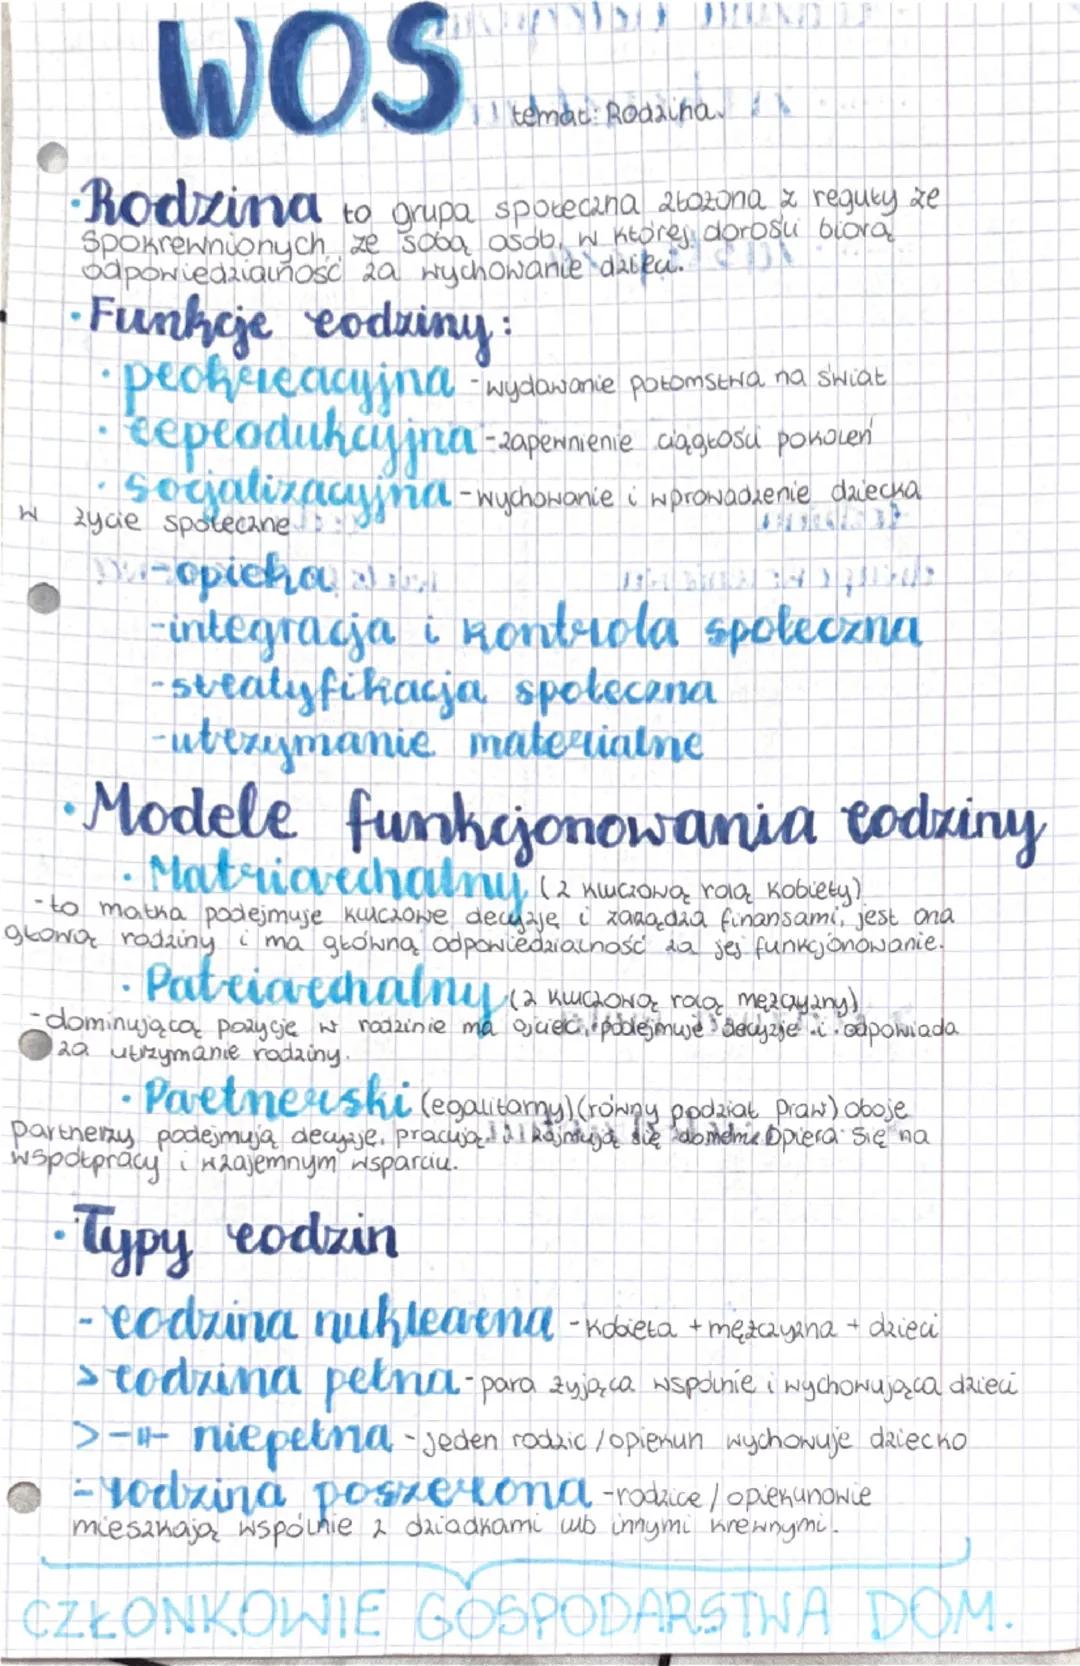 WOS
temat: Rodzina.
·Rodzina to grupa społeczna złożona z reguły ze
spokrewnionych ze sobą osób, w której dorośli biorą
odpowiedzialność za wychowanie dzieci.
·Funkcje rodziny:
·prokreacyjna -wydawanie potomstwa na świat
·reprodukcyjna -zapewnienie ciągłości pokoleń
·socjalizacyjna -wychowanie i wprowadzenie dziecka
w życie społeczne
-opieka
-integracja i kontrola społeczna
-stratyfikacja społeczna
-utrzymanie materialne
·Modele funkcjonowania rodziny
·Matriarchalny (z kluczową rolą kobiety)
-to matka podejmuje kluczowe decyzję i zarządza finansami, jest ona
głową rodziny i ma główną odpowiedzialność za jej funkcjonowanie.
·Patriarchalny (z kluczową rolą mężczyzny)
-dominującą pozycję w rodzinie ma ojciec, podejmuje decyzje i odpowiada
za utrzymanie rodziny.
·Partnerski (egalitarny) (równy podział praw) oboje
partnerzy podejmują decyzję, pracują i zajmują się domem. Opiera się na
współpracy i wzajemnym wsparciu.
·Typy rodzin
-rodzina nuklearna -kobieta + mężczyzna + dzieci
>rodzina pełna -para żyjąca wspólnie i wychowująca dzieci
>-||- niepełna -jeden rodzic/opiekun wychowuje dziecko
-rodzina poszerzona -rodzice/opiekunowie
mieszkają wspólnie z dziadkami lub innymi krewnymi.
CZŁONKOWIE GOSPODARSTWA DOM.